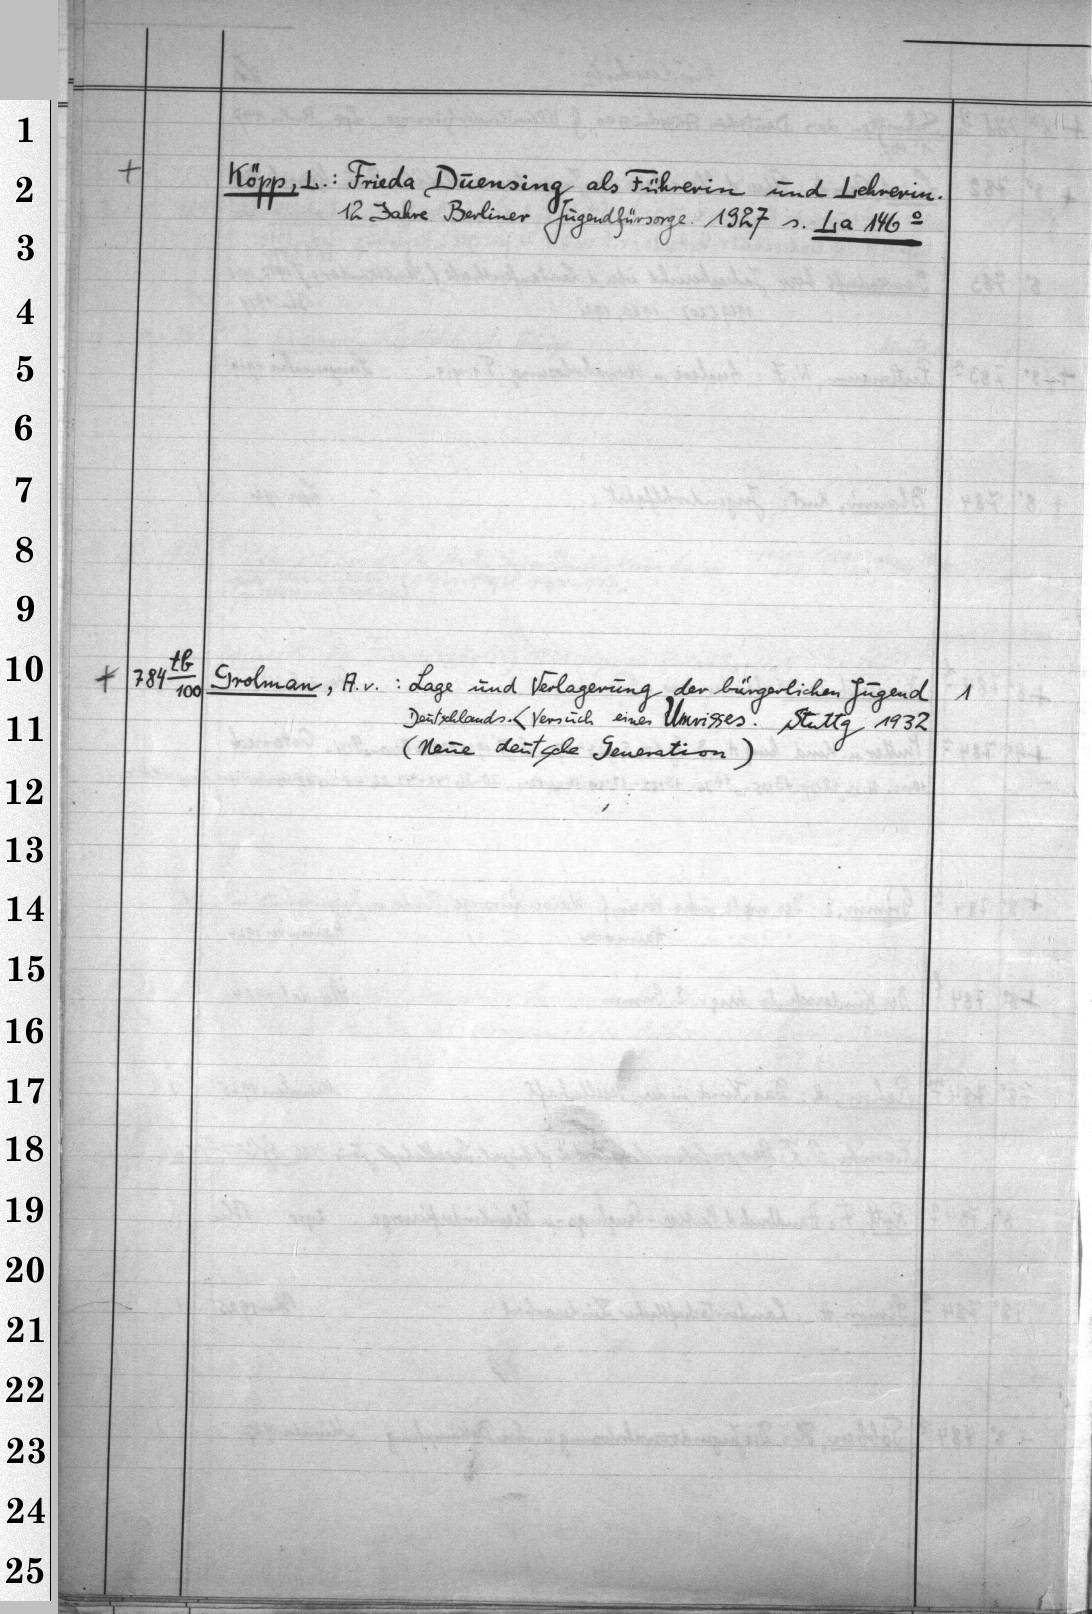 1
2
3
4
5
6
7
8
9
10
11
12
13
14
15
16
17
18
19
20
21
22
23
24
25
+ Köpp, L.: Frieda Duensing als Führerin und Lehrerin.
12 Jahre Berliner Jugendfürsorge. 1927 s. La 146º
+ 784 tb/100 Grolman, A. v. : Lage und Verlagerung der bürgerlichen Jugend 1
Deutschlands. < Versuch eines Umrisses. Stuttg 1932
(Neue deutsche Generation)